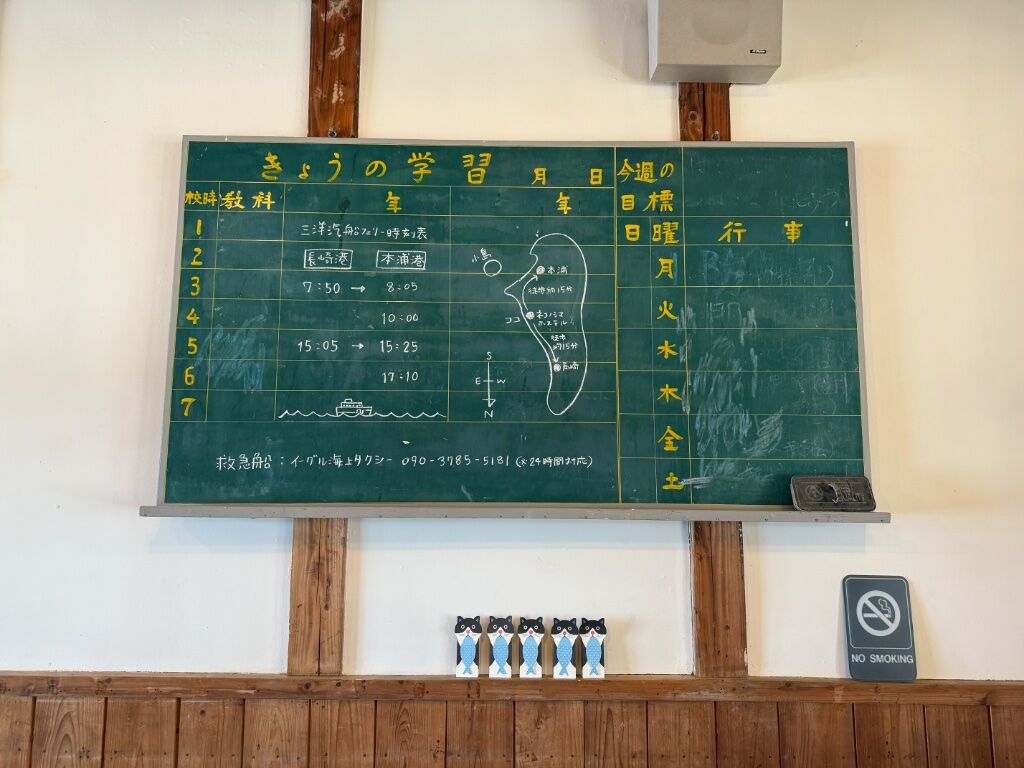 きょうの学習 月 日
校時 教科 年 年
1 三洋汽船フェリー時刻表
2 長崎港 本浦港
3 7:50 → 8:05
4 10:00
5 15:05 → 15:25
6 17:10
7
小島
本浦
徒歩約15分
ココ
ネコノシマ
ホステル
徒歩
約15分
高崎
S
E W
N
救急船：イーグル海上タクシー 090-3785-5181 (※24時間対応)
今週の
目標
日曜 行事
月
火
水
木
金
土
NO SMOKING